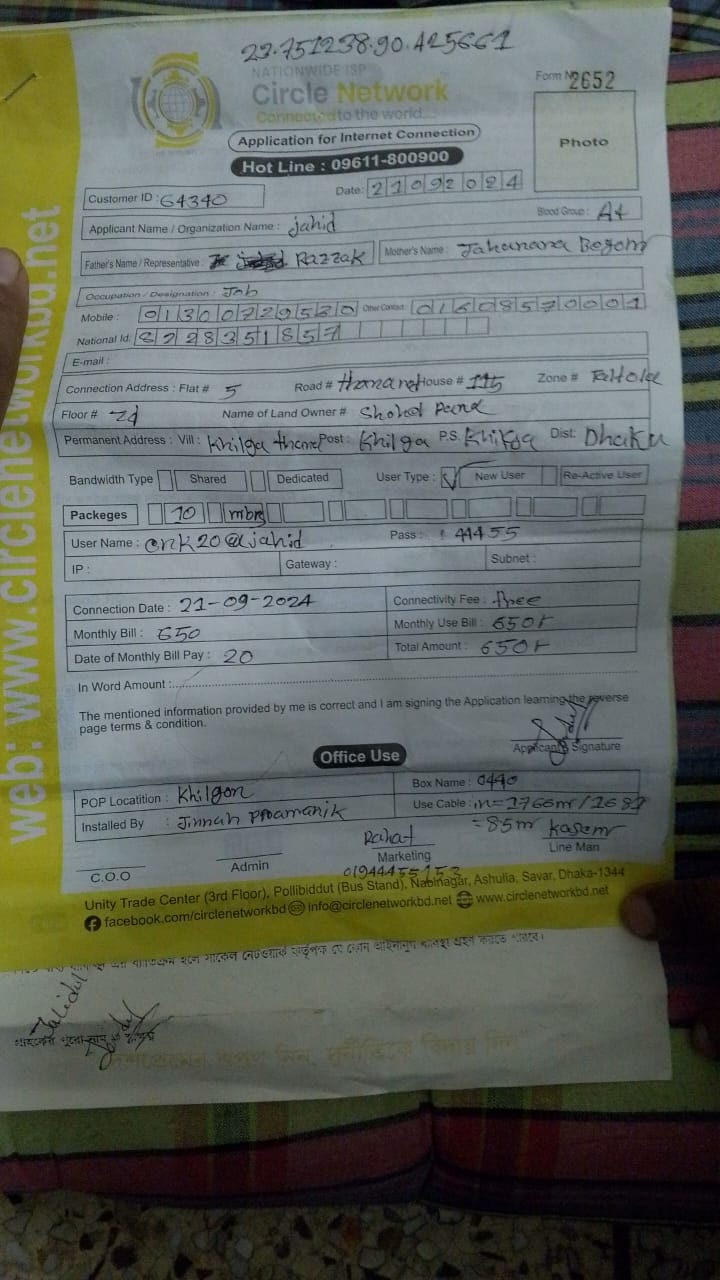 23.751238.90.425661
NATIONWIDE ISP
Circle Network
Connected to the world...
Form No 2652
Photo
Application for Internet Connection
Hot Line : 09611-800900
Customer ID : 64340
Date: 21092024
Applicant Name / Organization Name : jahid
Blood Group : A+
Father's Name / Representative : Razzak Mother's Name : Jahanara Begom
Occupation / Designation : Job
Mobile : 01300729530 Other Contact : 01608570001
National Id: 8228351857
E-mail :
Connection Address : Flat # 5 Road # House # 115 Zone #
Floor # 2d Name of Land Owner # Shohel
Permanent Address : Vill : Khilga Post : Khilga P.S. Khilga Dist: Dhaka
Bandwidth Type Shared Dedicated User Type : ✓ New User Re-Active User
Packeges 10 mbps
User Name : cnk20@jahid Pass : 44455
IP : Gateway : Subnet :
Connection Date : 21-09-2024 Connectivity Fee : free
Monthly Bill : 650 Monthly Use Bill : 650
Date of Monthly Bill Pay : 20 Total Amount : 650
In Word Amount :
The mentioned information provided by me is correct and I am signing the Application learning the reverse
page terms & condition.
Applicant's Signature
Office Use
POP Locatition : Khilgon Box Name : 0440
Installed By : Jinnah Proamanik Use Cable : in=1766m/1681
=85m
Rahat Kasem
C.O.O Admin Marketing Line Man
01944455153
Unity Trade Center (3rd Floor), Pollibiddut (Bus Stand), Nabinagar, Ashulia, Savar, Dhaka-1344
facebook.com/circlenetworkbd info@circlenetworkbd.net www.circlenetworkbd.net
web: www.circlenetworkbd.net
Jahidul